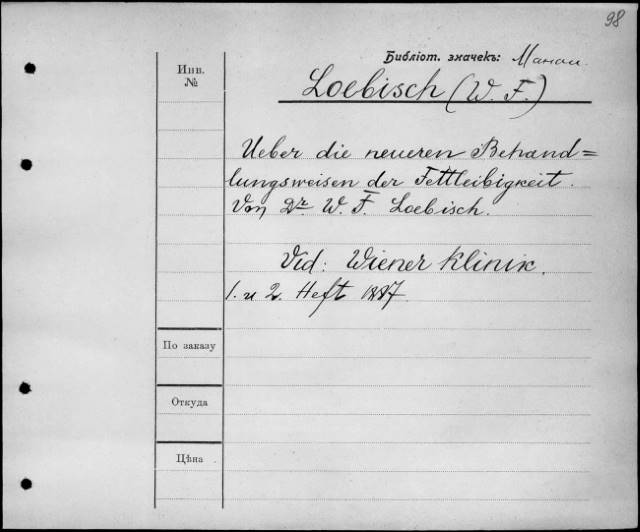 98
Библіот. значекъ:
Инв.
№
Loebisch (W. F.)
Ueber die neueren Behand=
lungsweisen der Fettleibigkeit.
Von Dr. W. F. Loebisch.
Vid: Wiener Klinik.
1. u 2. Heft 1887.
По заказу
Откуда
Цѣна